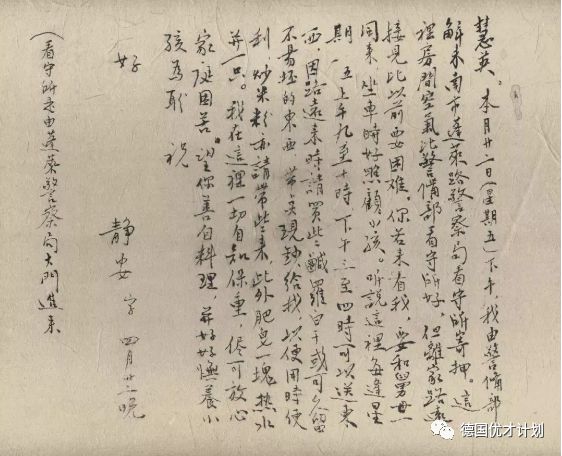 慧英。本月廿二日(星期五)下午,我由警備部
解來南市蓬萊路警察局看守所寄押。這
裡房間空氣比警備部看守所好,但離家路遠
接見比以前要困難。你若來看我,要和舅母一
同來,坐車時好照顧小孩。聽說這裡每逢星
期一、五上午九至十時,下午三至四時可以送東
西,因路遠來時請買些鹹蘿白干或可久留
不易壞的東西,帶点現鈔給我,以便用時便
利,炒米粉亦請帶些來,此外肥皂一塊熱水
瓶一只。我在這裡一切自知保重,儘可放心
家庭困苦,望你善自料理,并好好撫養小
孩為盼 祝
好
靜安字 四月廿二晚
(看守所是由蓬萊警察局大門進來
德国优才计划